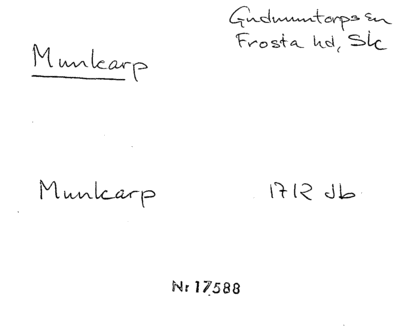 Gudmuntorps sn
Frosta hd, Sk
Munkarp
Munkarp 1712 Jb
Nr 17588